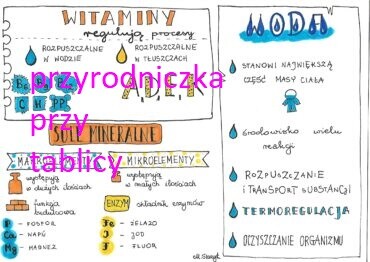 WITAMINY
regulują procesy
ROZPUSZCZALNE
W WODZIE
ROZPUSZCZALNE
W TŁUSZCZACH
A, D, E, K
C H PP
przyrodniczka
przy
tablicy
SOLE MINERALNE
MAKROELEMENTY
występują
w dużych ilościach
funkcja
budulcowa
P - FOSFOR
Ca - WAPŃ
Mg - MAGNEZ
MIKROELEMENTY
występują
w małych ilościach
ENZYM składnik enzymów
Fe - ŻELAZO
I - JOD
F - FLUOR
WODA
STANOWI NAJWIĘKSZĄ
CZĘŚĆ MASY CIAŁA
środowisko wielu
reakcji
ROZPUSZCZANIE
I TRANSPORT SUBSTANCJI
TERMOREGULACJA
OCZYSZCZANIE ORGANIZMU